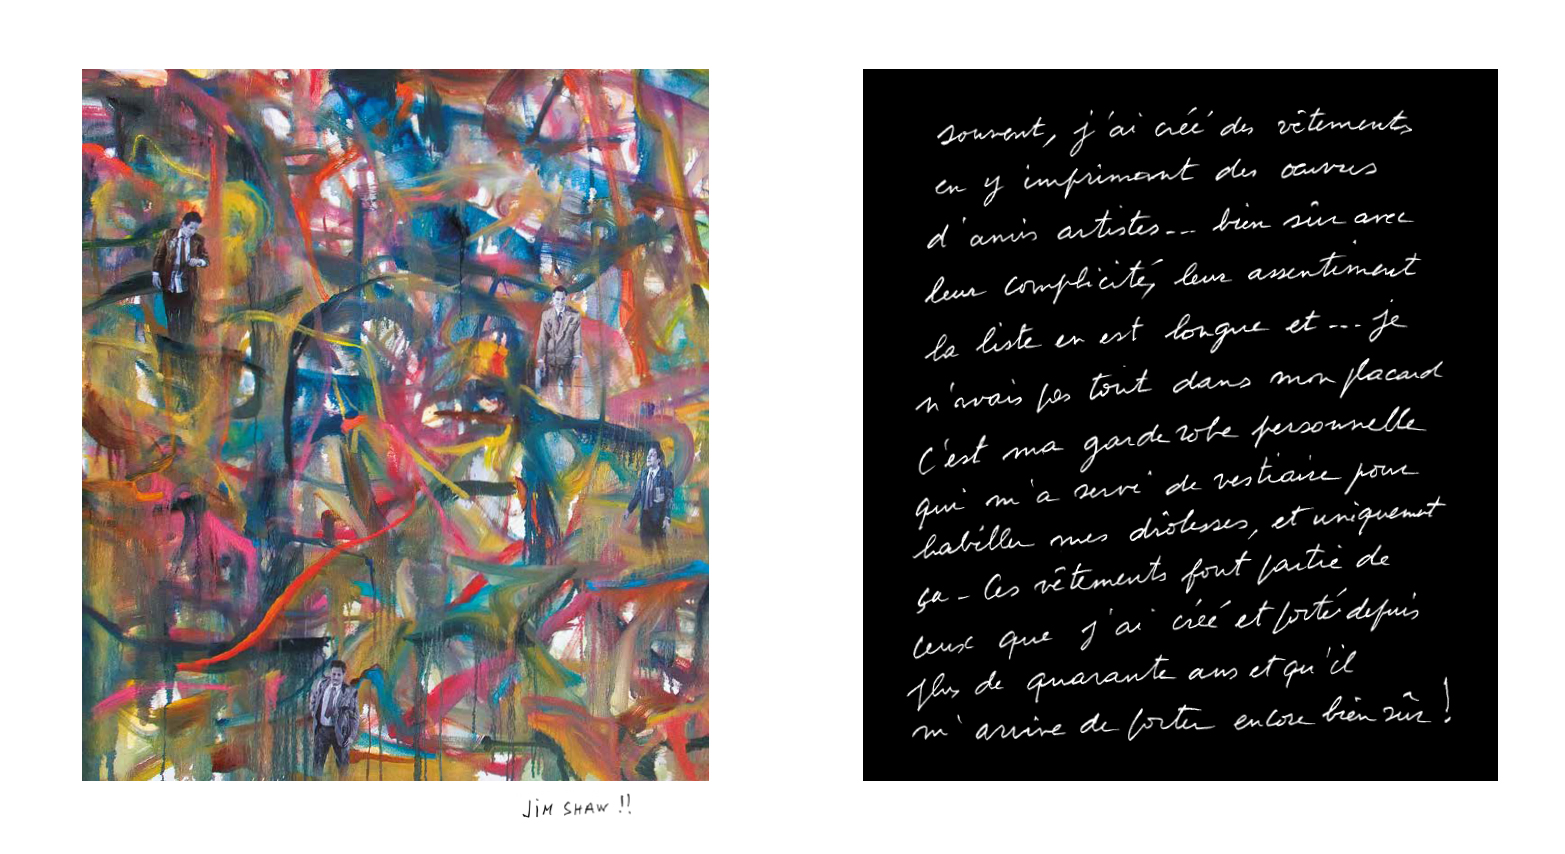 JiM SHAW !!
souvent, j'ai créé des vêtements
en y imprimant des œuvres
d'amis artistes... bien sûr avec
leur complicité, leur assentiment
la liste en est longue et... je
n'avais pas tout dans mon placard
C'est ma garde robe personnelle
qui m'a servi de vestiaire pour
habiller mes drôlesses, et uniquement
ça - Ces vêtements font partie de
ceux que j'ai créé et porté depuis
plus de quarante ans et qu'il
m'arrive de porter encore bien sûr !